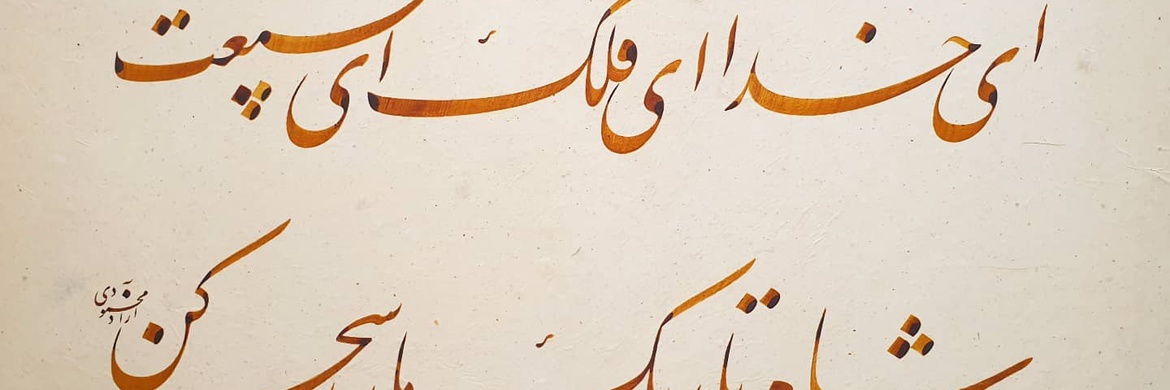 ای خدا ای فلک ای طبیعت
شام تاریک ما را سحر کن
آزاد محمودی